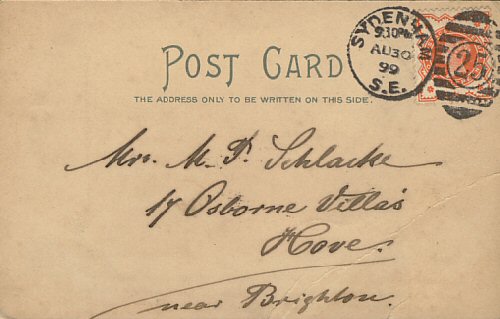 POST CARD
THE ADDRESS ONLY TO BE WRITTEN ON THIS SIDE.
SYDENHAM
9.30PM
AU 30
99
S.E.
Mrs. M. P. Schlacke
17 Osborne Villas
Hove.
near Brighton.